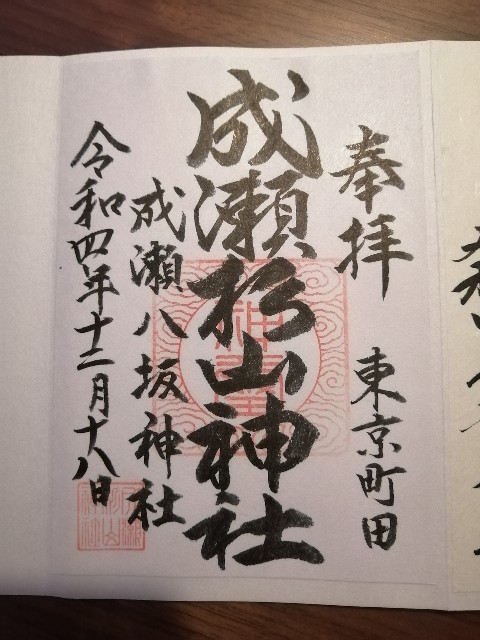 奉拝
東京町田
成瀬杉山神社
成瀬八坂神社
令和四年十二月十八日